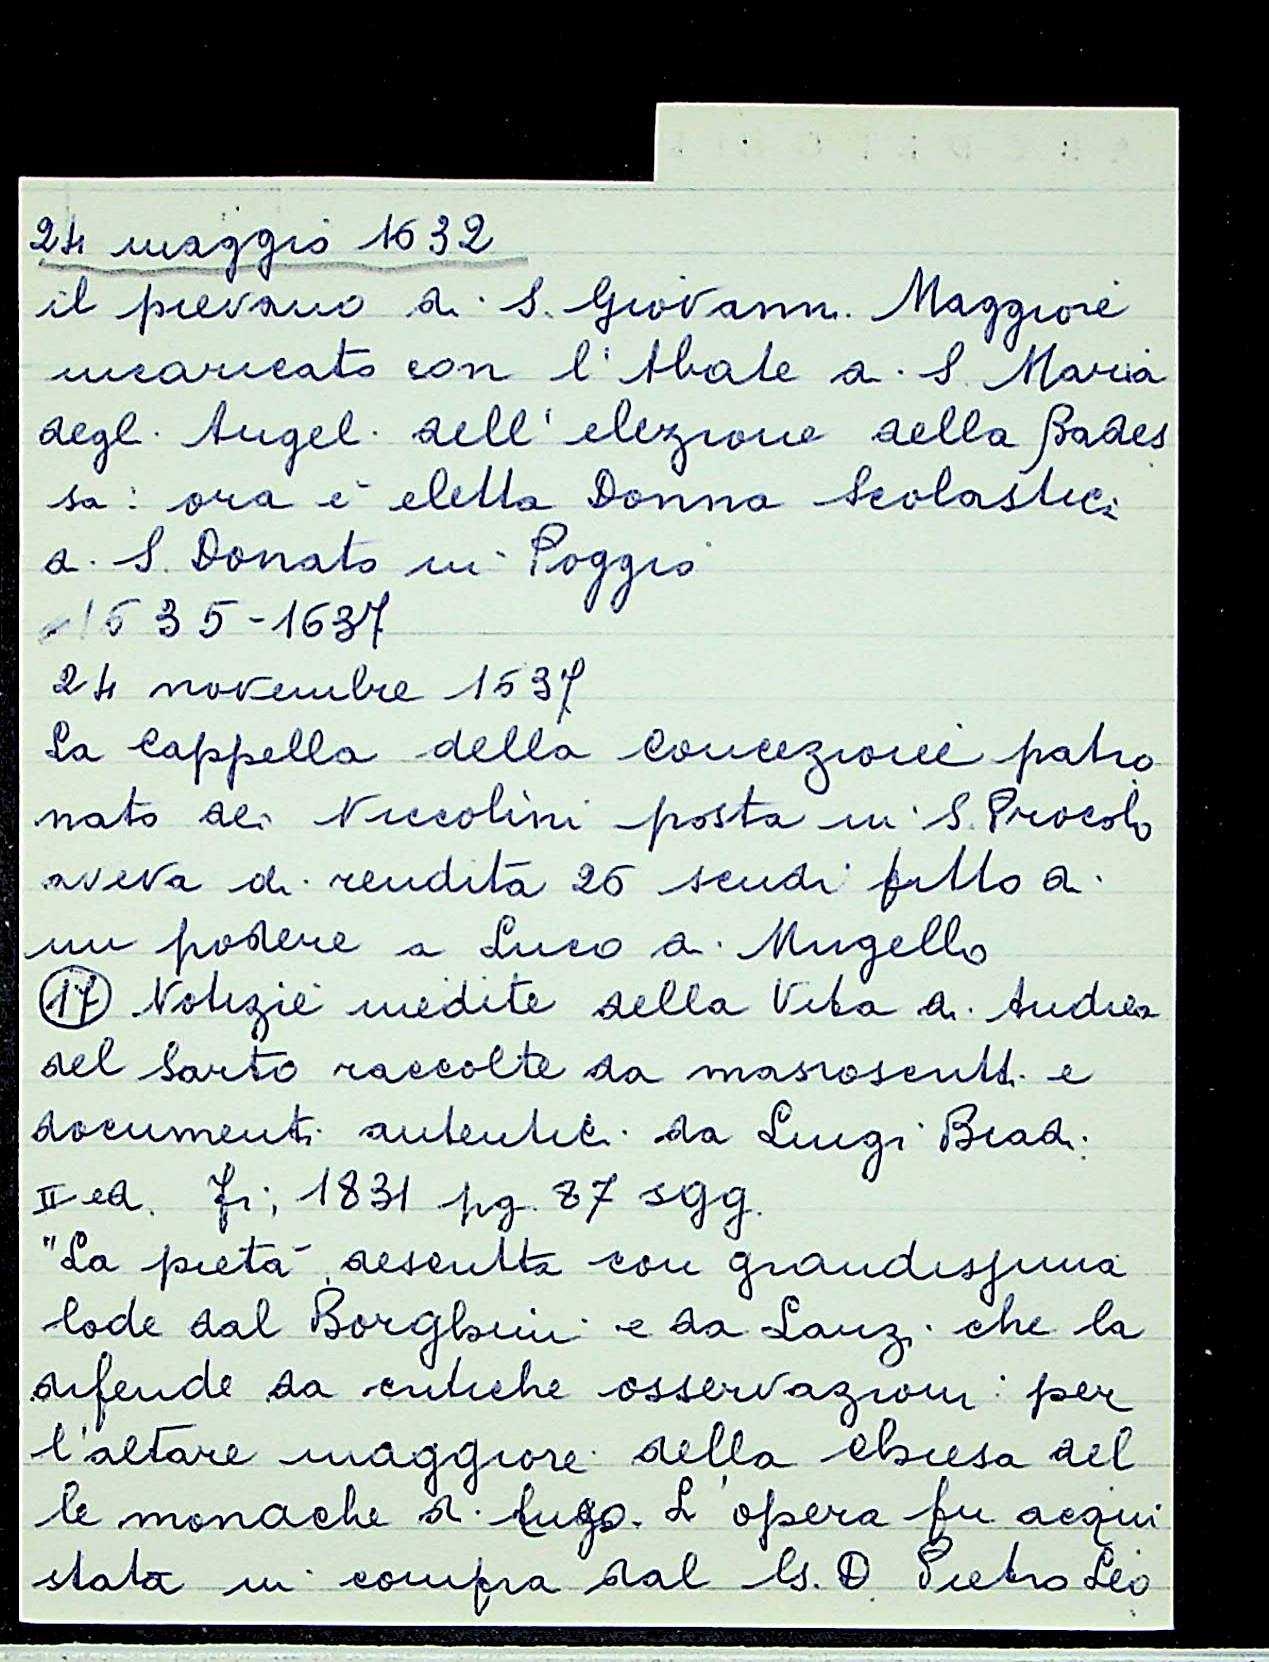 24 maggio 1632
il pievano di S. Giovanni Maggiore
incaricato con l'Abate di S. Maria
degli Angeli dell'elezione della Bades
sa: ora è eletta Donna Scolastica
di S. Donato in Poggio
1635-1637
24 novembre 1637
La Cappella della Concezione patro
nato dei Niccolini posta in S. Procolo
aveva di rendita 26 scudi fitto di
un podere a Luco di Mugello
(17) Notizie inedite della Vita di Andrea
del Sarto raccolte da manoscritti e
documenti autentici da Luigi Biadi
II ed. Fi, 1831 pg. 87 sgg.
"La pietà descritta con grandissima
lode dal Borghini e da Lanzi che la
difende da critiche osservazioni: per
l'altare maggiore della chiesa del
le monache di Lugo. L'opera fu acqui
stata in compra dal G. D Pietro Leo